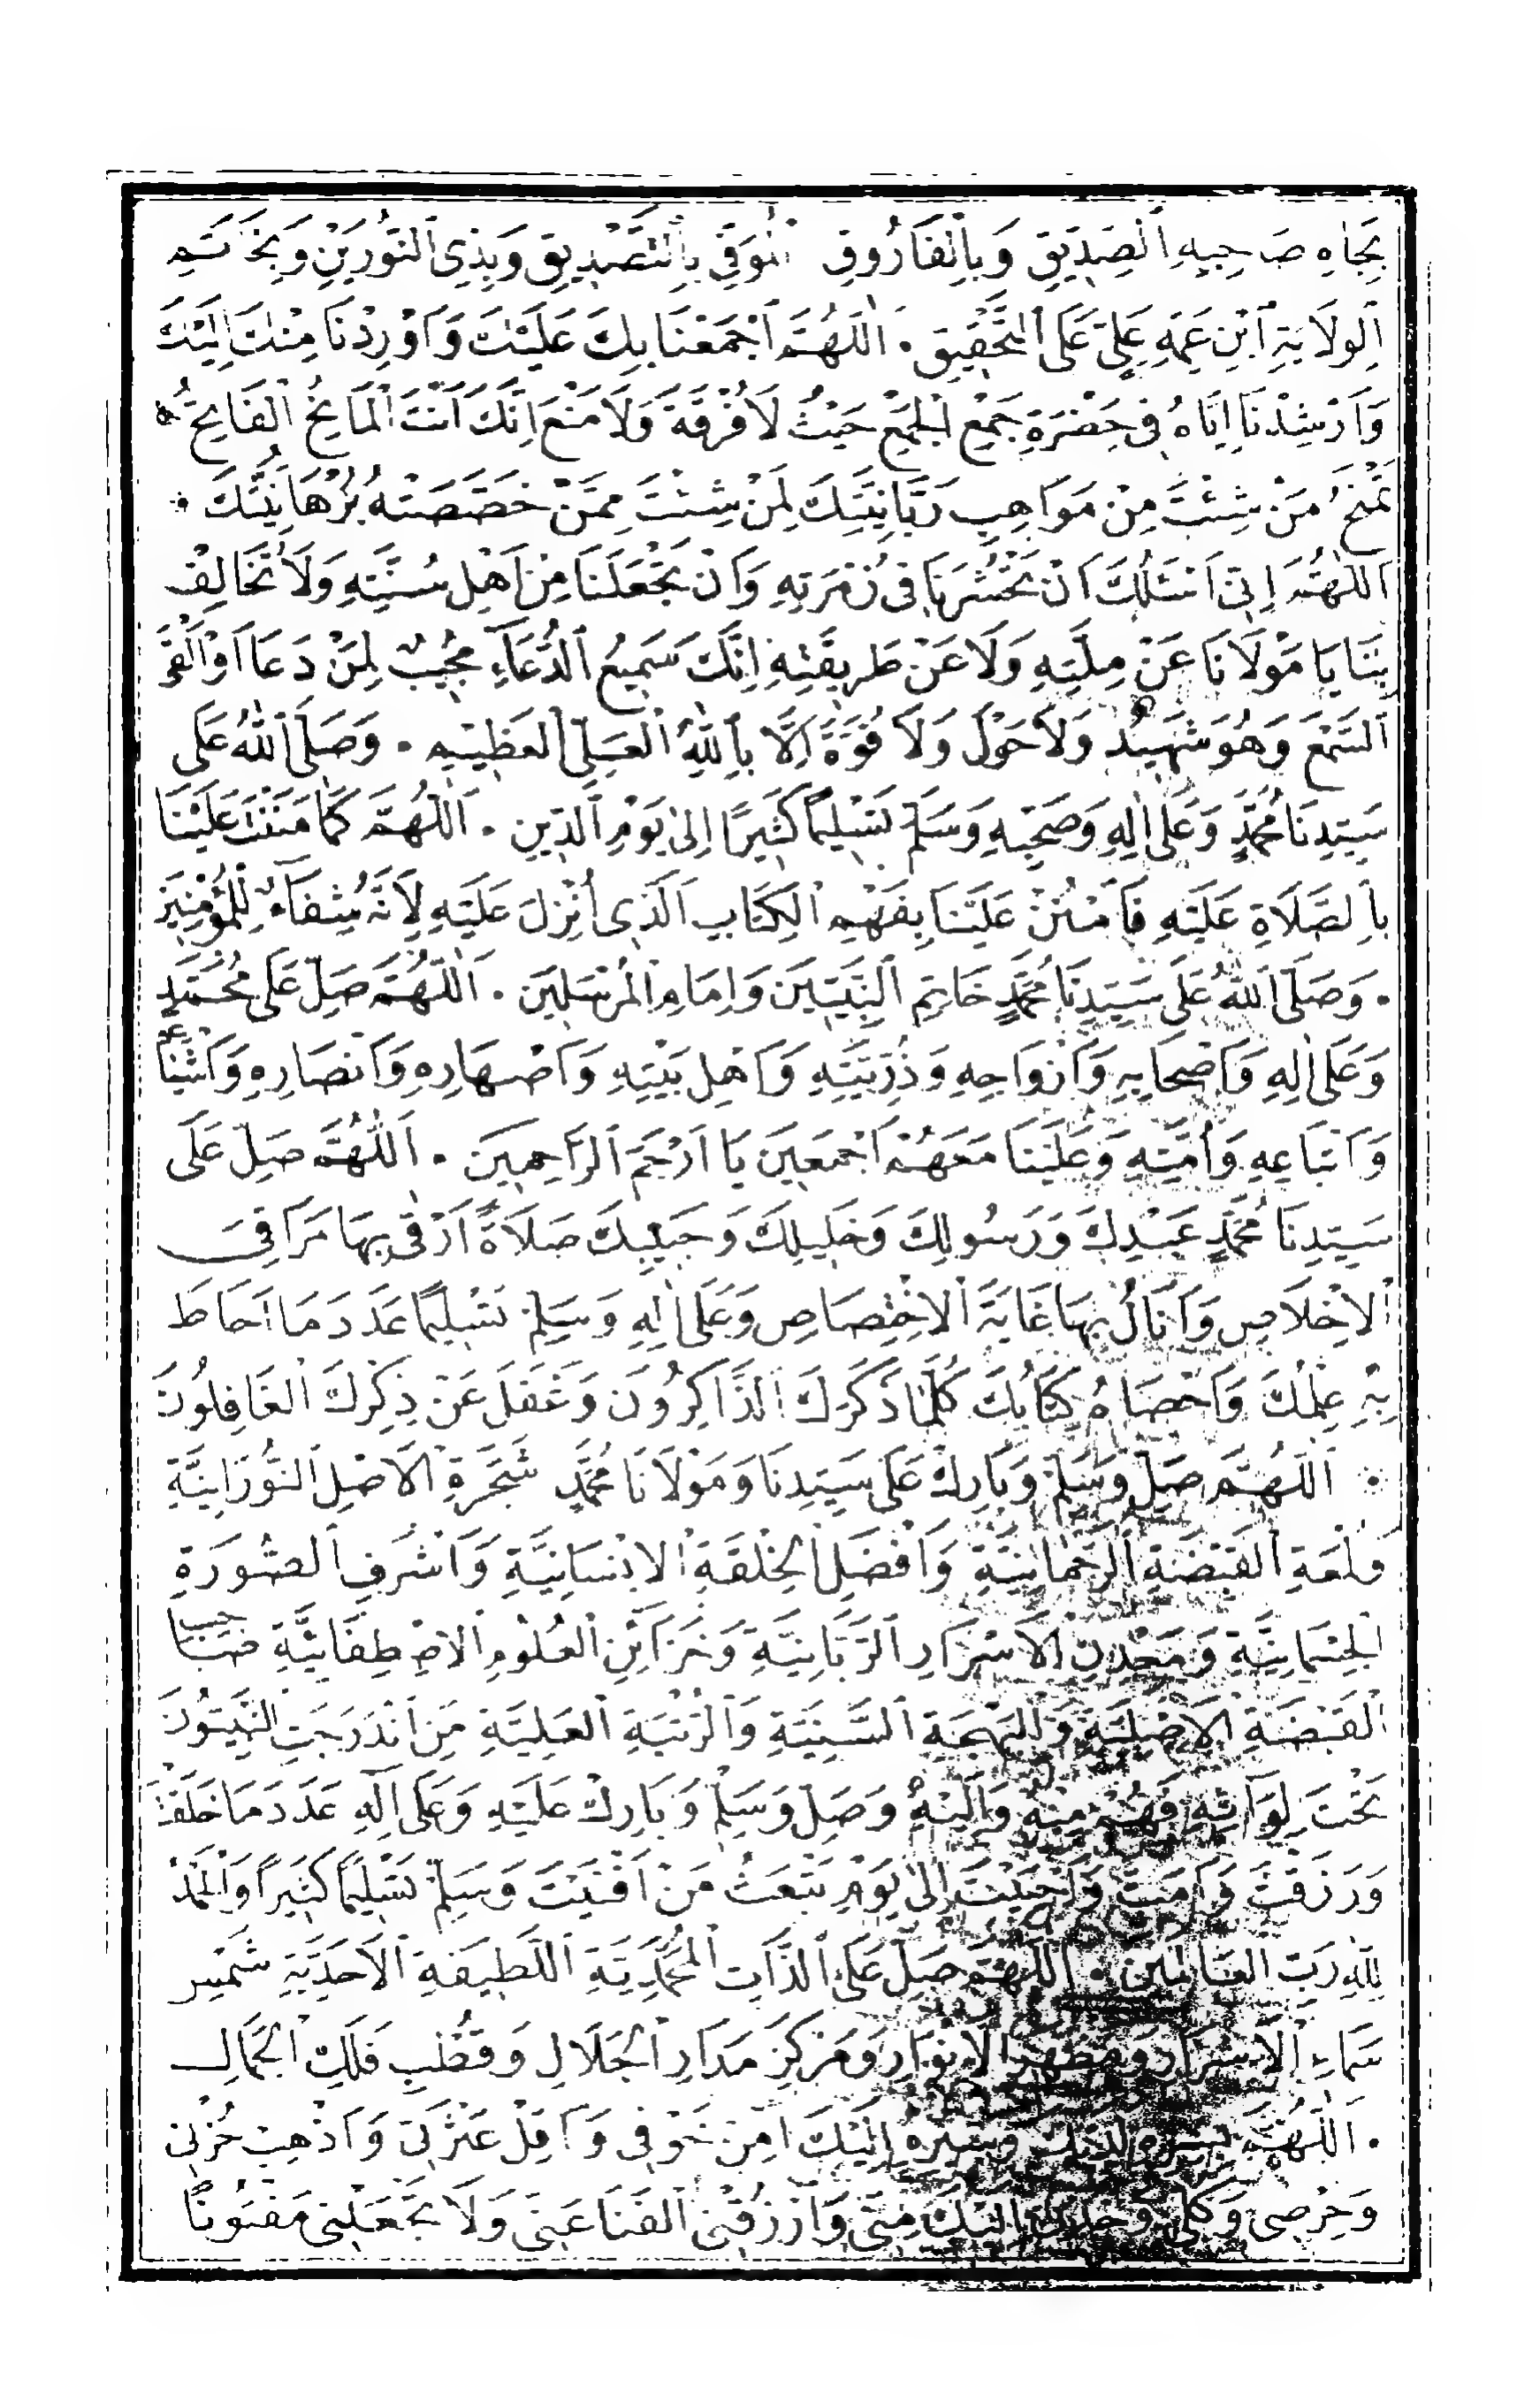 بِجَاهِ صَاحِبِهِ ٱلصِّدِّيقِ وَبِٱلْفَارُوقِ ٱلْمُوَفِّي بِٱلتَّصْدِيقِ وَبِذِى ٱلنُّورَيْنِ وَبِخَاتَمِ
ٱلْوِلَايَةِ ٱبْنِ عَمِّهِ عَلِيٍّ عَلَى ٱلتَّحْقِيقِ . اَللّٰهُمَّ ٱجْمَعْنَا بِكَ عَلَيْكَ وَاَوْرِدْنَا مِنْكَ اِلَيْكَ
وَاَرْشِدْنَا اِيَّاهُ فِى حَضْرَةِ جَمْعِ ٱلْجَمْعِ حَيْثُ لَا فُرْقَةَ وَلَا مَنْعَ اِنَّكَ اَنْتَ ٱلْمَانِحُ ٱلْفَاتِحُ
تَمْنَحُ مَنْ شِئْتَ مِنْ مَوَاهِبِ رَبَّانِيَّتِكَ لِمَنْ شِئْتَ مِمَّنْ خَصَّصَتْهُ بُرْهَانِيَّتُكَ .
اَللّٰهُمَّ اِنِّى اَسْئَلُكَ اَنْ تَحْشُرَنَا فِى زُمْرَتِهِ وَاَنْ تَجْعَلَنَا مِنْ اَهْلِ سُنَّتِهِ وَلَا تُخَالِفْ
بِنَا يَا مَوْلَانَا عَنْ مِلَّتِهِ وَلَا عَنْ طَرِيقَتِهِ اِنَّكَ سَمِيعُ ٱلدُّعَآءِ مُجِيبٌ لِمَنْ دَعَا اَوْ اَلْقَى
ٱلسَّمْعَ وَهُوَ شَهِيدٌ وَلَا حَوْلَ وَلَا قُوَّةَ اِلَّا بِٱللّٰهِ ٱلْعَلِىِّ ٱلْعَظِيمِ . وَصَلَّى ٱللّٰهُ عَلَى
سَيِّدِنَا مُحَمَّدٍ وَعَلَى اٰلِهِ وَصَحْبِهِ وَسَلَّمَ تَسْلِيمًا كَثِيرًا اِلىٰ يَوْمِ ٱلدِّينِ . اَللّٰهُمَّ كَمَا مَنَنْتَ عَلَيْنَا
بِٱلصَّلَاةِ عَلَيْهِ فَامْنُنْ عَلَيْنَا بِفَهْمِ ٱلْكِتَابِ ٱلَّذِى اُنْزِلَ عَلَيْهِ لِاَنَّهُ شِفَآءٌ لِلْمُؤْمِنِينَ
. وَصَلَّى ٱللّٰهُ عَلَى سَيِّدِنَا مُحَمَّدٍ خَاتِمِ ٱلنَّبِيِّينَ وَاِمَامِ ٱلْمُرْسَلِينَ . اَللّٰهُمَّ صَلِّ عَلَى مُحَمَّدٍ
وَعَلَى اٰلِهِ وَاَصْحَابِهِ وَاَزْوَاجِهِ وَذُرِّيَّتِهِ وَاَهْلِ بَيْتِهِ وَاَصْهَارِهِ وَاَنْصَارِهِ وَاَشْيَاعِهِ
وَاَتْبَاعِهِ وَاُمَّتِهِ وَعَلَيْنَا مَعَهُمْ اَجْمَعِينَ يَا اَرْحَمَ ٱلرَّاحِمِينَ . اَللّٰهُمَّ صَلِّ عَلَى
سَيِّدِنَا مُحَمَّدٍ عَبْدِكَ وَرَسُولِكَ وَخَلِيلِكَ وَحَبِيبِكَ صَلَاةً اَرْقَى بِهَا مَرَاقِىَ
ٱلْاِخْلَاصِ وَاَنَالُ بِهَا غَايَةَ ٱلْاِخْتِصَاصِ وَعَلَى اٰلِهِ وَسَلِّمْ تَسْلِيمًا عَدَدَ مَا اَحَاطَ
بِهِ عِلْمُكَ وَاَحْصَاهُ كِتَابُكَ كُلَّمَا ذَكَرَكَ ٱلذَّاكِرُونَ وَغَفَلَ عَنْ ذِكْرِكَ ٱلْغَافِلُونَ
. اَللّٰهُمَّ صَلِّ وَسَلِّمْ وَبَارِكْ عَلَى سَيِّدِنَا وَمَوْلَانَا مُحَمَّدٍ شَجَرَةِ ٱلْاَصْلِ ٱلنُّورَانِيَّةِ
وَلَمْعَةِ ٱلْقَبْضَةِ ٱلرَّحْمَانِيَّةِ وَاَفْضَلِ ٱلْخِلْقَةِ ٱلْاِنْسَانِيَّةِ وَاَشْرَفِ ٱلصُّورَةِ
ٱلْجِسْمَانِيَّةِ وَمَعْدِنِ ٱلْاَسْرَارِ ٱلرَّبَّانِيَّةِ وَخَزَآئِنِ ٱلْعُلُومِ ٱلْاِصْطِفَائِيَّةِ صَاحِبِ
ٱلْقَبْضَةِ ٱلْاَصْلِيَّةِ وَٱلْبَهْجَةِ ٱلسَّنِيَّةِ وَٱلرُّتْبَةِ ٱلْعَلِيَّةِ مَنِ ٱنْدَرَجَتِ ٱلنَّبِيُّونَ
تَحْتَ لِوَآئِهِ فَهُمْ مِنْهُ وَاِلَيْهِ وَصَلِّ وَسَلِّمْ وَبَارِكْ عَلَيْهِ وَعَلَى اٰلِهِ عَدَدَ مَا خَلَقْتَ
وَرَزَقْتَ وَاَمَتَّ وَاَحْيَيْتَ اِلىٰ يَوْمِ تَبْعَثُ مَنْ اَفْنَيْتَ وَسَلِّمْ تَسْلِيمًا كَثِيرًا وَٱلْحَمْدُ
لِلّٰهِ رَبِّ ٱلْعَالَمِينَ . اَللّٰهُمَّ صَلِّ عَلَى ٱلذَّاتِ ٱلْمُحَمَّدِيَّةِ ٱللَّطِيفَةِ ٱلْاَحَدِيَّةِ شَمْسِ
سَمَاءِ ٱلْاَسْرَارِ وَمَظْهَرِ ٱلْاَنْوَارِ وَمَرْكَزِ مَدَارِ ٱلْجَلَالِ وَقُطْبِ فَلَكِ ٱلْجَمَالِ
. اَللّٰهُمَّ بِسِرِّهِ لَدَيْكَ وَبِسَيْرِهِ اِلَيْكَ اٰمِنْ خَوْفِى وَاَقِلْ عَثْرَتِى وَاَذْهِبْ حُزْنِى
وَحِرْصِى وَكُنْ لِى وَخُذْنِى اِلَيْكَ مِنِّى وَٱرْزُقْنِى ٱلْفَنَا عَنِّى وَلَا تَجْعَلْنِى مَفْتُونًا